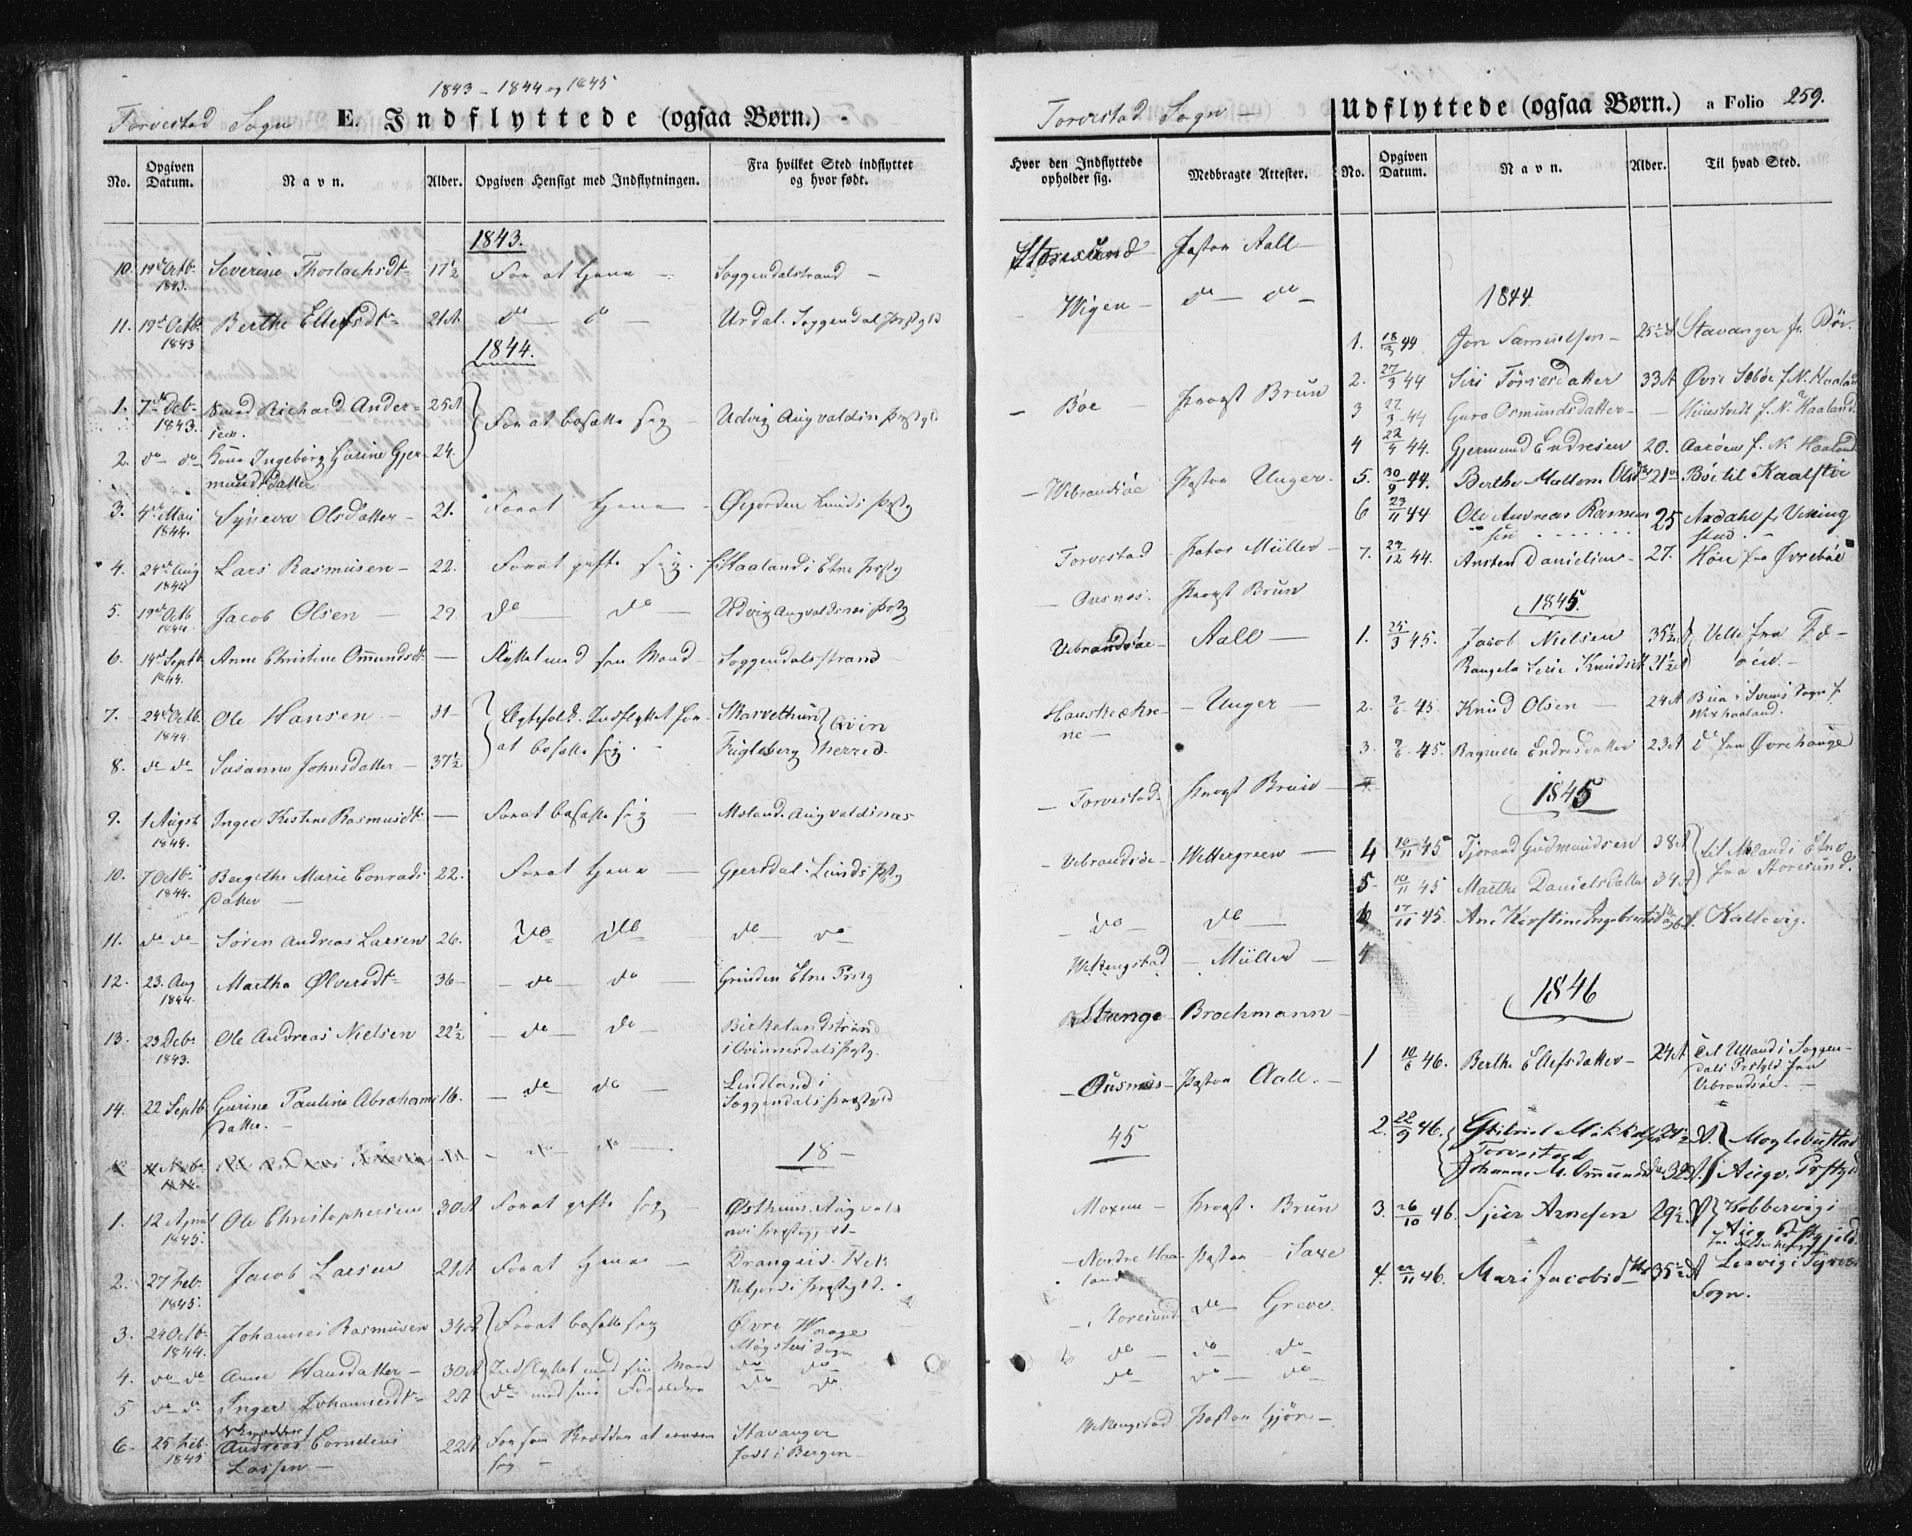 1843 - 1844 og 1845
Torvestad Sogn E. Indflyttede (ogsaa Børn.)
No. Opgiven Datum. Navn. Alder. Opgiven Hensigt med Indflytningen. Fra hvilket Sted indflyttet og hvor født.
1843.
10. 19de Octb. 1843. Severine Thorlachsdt 17½ For at tjene Soggendalstrand
11. 19de Octb. 1843 Berthe Ellefsdt 21 A do do Urdal. Soggendal Præstgld
1844.
1. 7de Deb. 1843. Richard Andersen. 25 A For at bosætte sig Udvig Augvaldsn. Præstgld
2. do do Kone Ingeborg Gurine Gjermundsdatter 24.
3. 4de Mai 1844. Syneva Olsdatter 21. For at tjene Lunds Præstg
4. 24de Aug 1844 Lars Rasmusen 22. For at gifte sig. Haaland i Etne Præstg
5. 19de Octb 1844. Jacob Olsen 29 do do Udvig Augvaldsnes Præstg
6. 14de Septb 1844. Anne Christine Omundsdt Flyttet med sin Mand Soggendalsstrand
7. 24de Octb. 1844. Ole Hansen 31 Ægtefolk. Indflyttet for at bosætte sig. Skarvethun
8. do do Susanne Johnsdatter 37½ Fugleberg Qvinherred.
9. 1 Augst 1844. Inger Kistine Rasmusdt For at bosætte sig Meland. Augvaldsnes
10. 7 Octb 1844. Bergithe Marie Conradsdatter 22. For at tjene Gjersdal. Lunds Præstg
11. do do Søren Andreas Larsen 26. do do do do
12. 23. Aug 1844. Martha Ølversdt 36 do do Grinden Etne Prstg
13. 23 Deb. 1843. Ole Andreas Nielsen 22½ do do Birkelandstrand i Qvinnesdals Præstg.
14. 22 Septb Gurine Pauline Abrahamsdatter. 16. do do Lindland i Soggendals Præstgld
18 -
1. 12 April 1845. Ole Christophersen 30 A For at gifte sig Østhuus. Augvaldsnæs Præstegjeld
2. 27 Feb. 1845. Jacob Larsen 21 A For at tjene Drangeid. Flekkefjords Præstgld.
3. 24 Octb. 1844. Johannes Rasmusen 34 A For at bosætte sig Øvre Hogster Sogn
4. do do Anne Hansdatter 30 A Indflyttet med sin Mand do do
5 do do Inger Johannesdt 2 A do med sine Forældre do do
6. 25 Feb. 1845 Skrædder Andreas Cornelius Lassen 22 A For som Skrædder at ernære sig Stavanger født i Bergen
Torvestad Sogn Udflyttede (ogsaa Børn.) a Folio 259.
Hvor den Indflyttede opholder sig. Medbragte Attester. No. Opgiven Datum. Navn. Alder. Til hvad Sted.
Storesund Pastor Aall
Wigen do do
Bøe Provst Brun
Vibrandsøe Pastor Unger.
Torvestad Pator Müller
Ousnes. Provst Brun
Vibrandsøe Aall
Hauskeehrne Unger
Torvestad. Provst Brun
Vibrandsøe Wettergreen
do do
Wikingstad Müller
Stange Brochmann
Ousnes Pastor Aall.
45
Moxen Provst. Brun
Nordre Haaland Pastor Saxe
Storesund do Greve.
do do do
do do do
Wikingstad Pastor Gjør
1844
1. 18/3 44 Jon Samuelsen 25½ A Stavanger fr. Bøe.
2. 27/3 44 Siri Torresdatter 33 A Øvre Sebøe f. N. Haaland
3 27/3 44 Guro Osmundsdatter N. Haaland.
4 22/4 44. Gjermund Endresen 20. Aarøen f. N. Haaland
5. 30/9 44. Berthe Mallene Olsdtr 21 Bøe til Kaalstøe
6 23/11 44 Ole Andreas Rasmussen 25 Axdahl fr Vikingstad.
7. 27/12 44. Ansten Danielsen 27. Høie fra Øvrebøe
1845.
1. 25/3 45. Jacob Nielsen 35½ A Velle fra Fæøen.
Rangela Serie Knudsdt 21½ A
2. 9/6 45 Knud Olsen 24 A Bua i Svens Sogn f. Wixhaaland.
3. 9/6 45. Ragnille Endresdatter 23 A do fra Øvrehauge
1845
4 10/11 45 Tjorand Gudmundsen 38 A til Meland i Etne fra Storesund.
5 10/11 45 Marthe Danielsdatter 34 A
6 17/11 45. Ane Kirstine Ingebretsdtr Kallevig.
1846
1 10/6 46. Berthe Ellefsdatter 24 A Til Uland i Soggendals Prstgld fra Vibrandsøe.
2. 22/9 46. Gabriel Mikkelsen Moglebustad
Torvestad
Johanne M. Omundsdtr 32 A. i Augv. Prstgld
3. 26/10 46. Sjur Arnesen 29½ Kobbervig i Aug Prstgjeld
4. 22/11 46. Mari Jacobsdtr 35½ A Leervig i Tysvær Sogn.